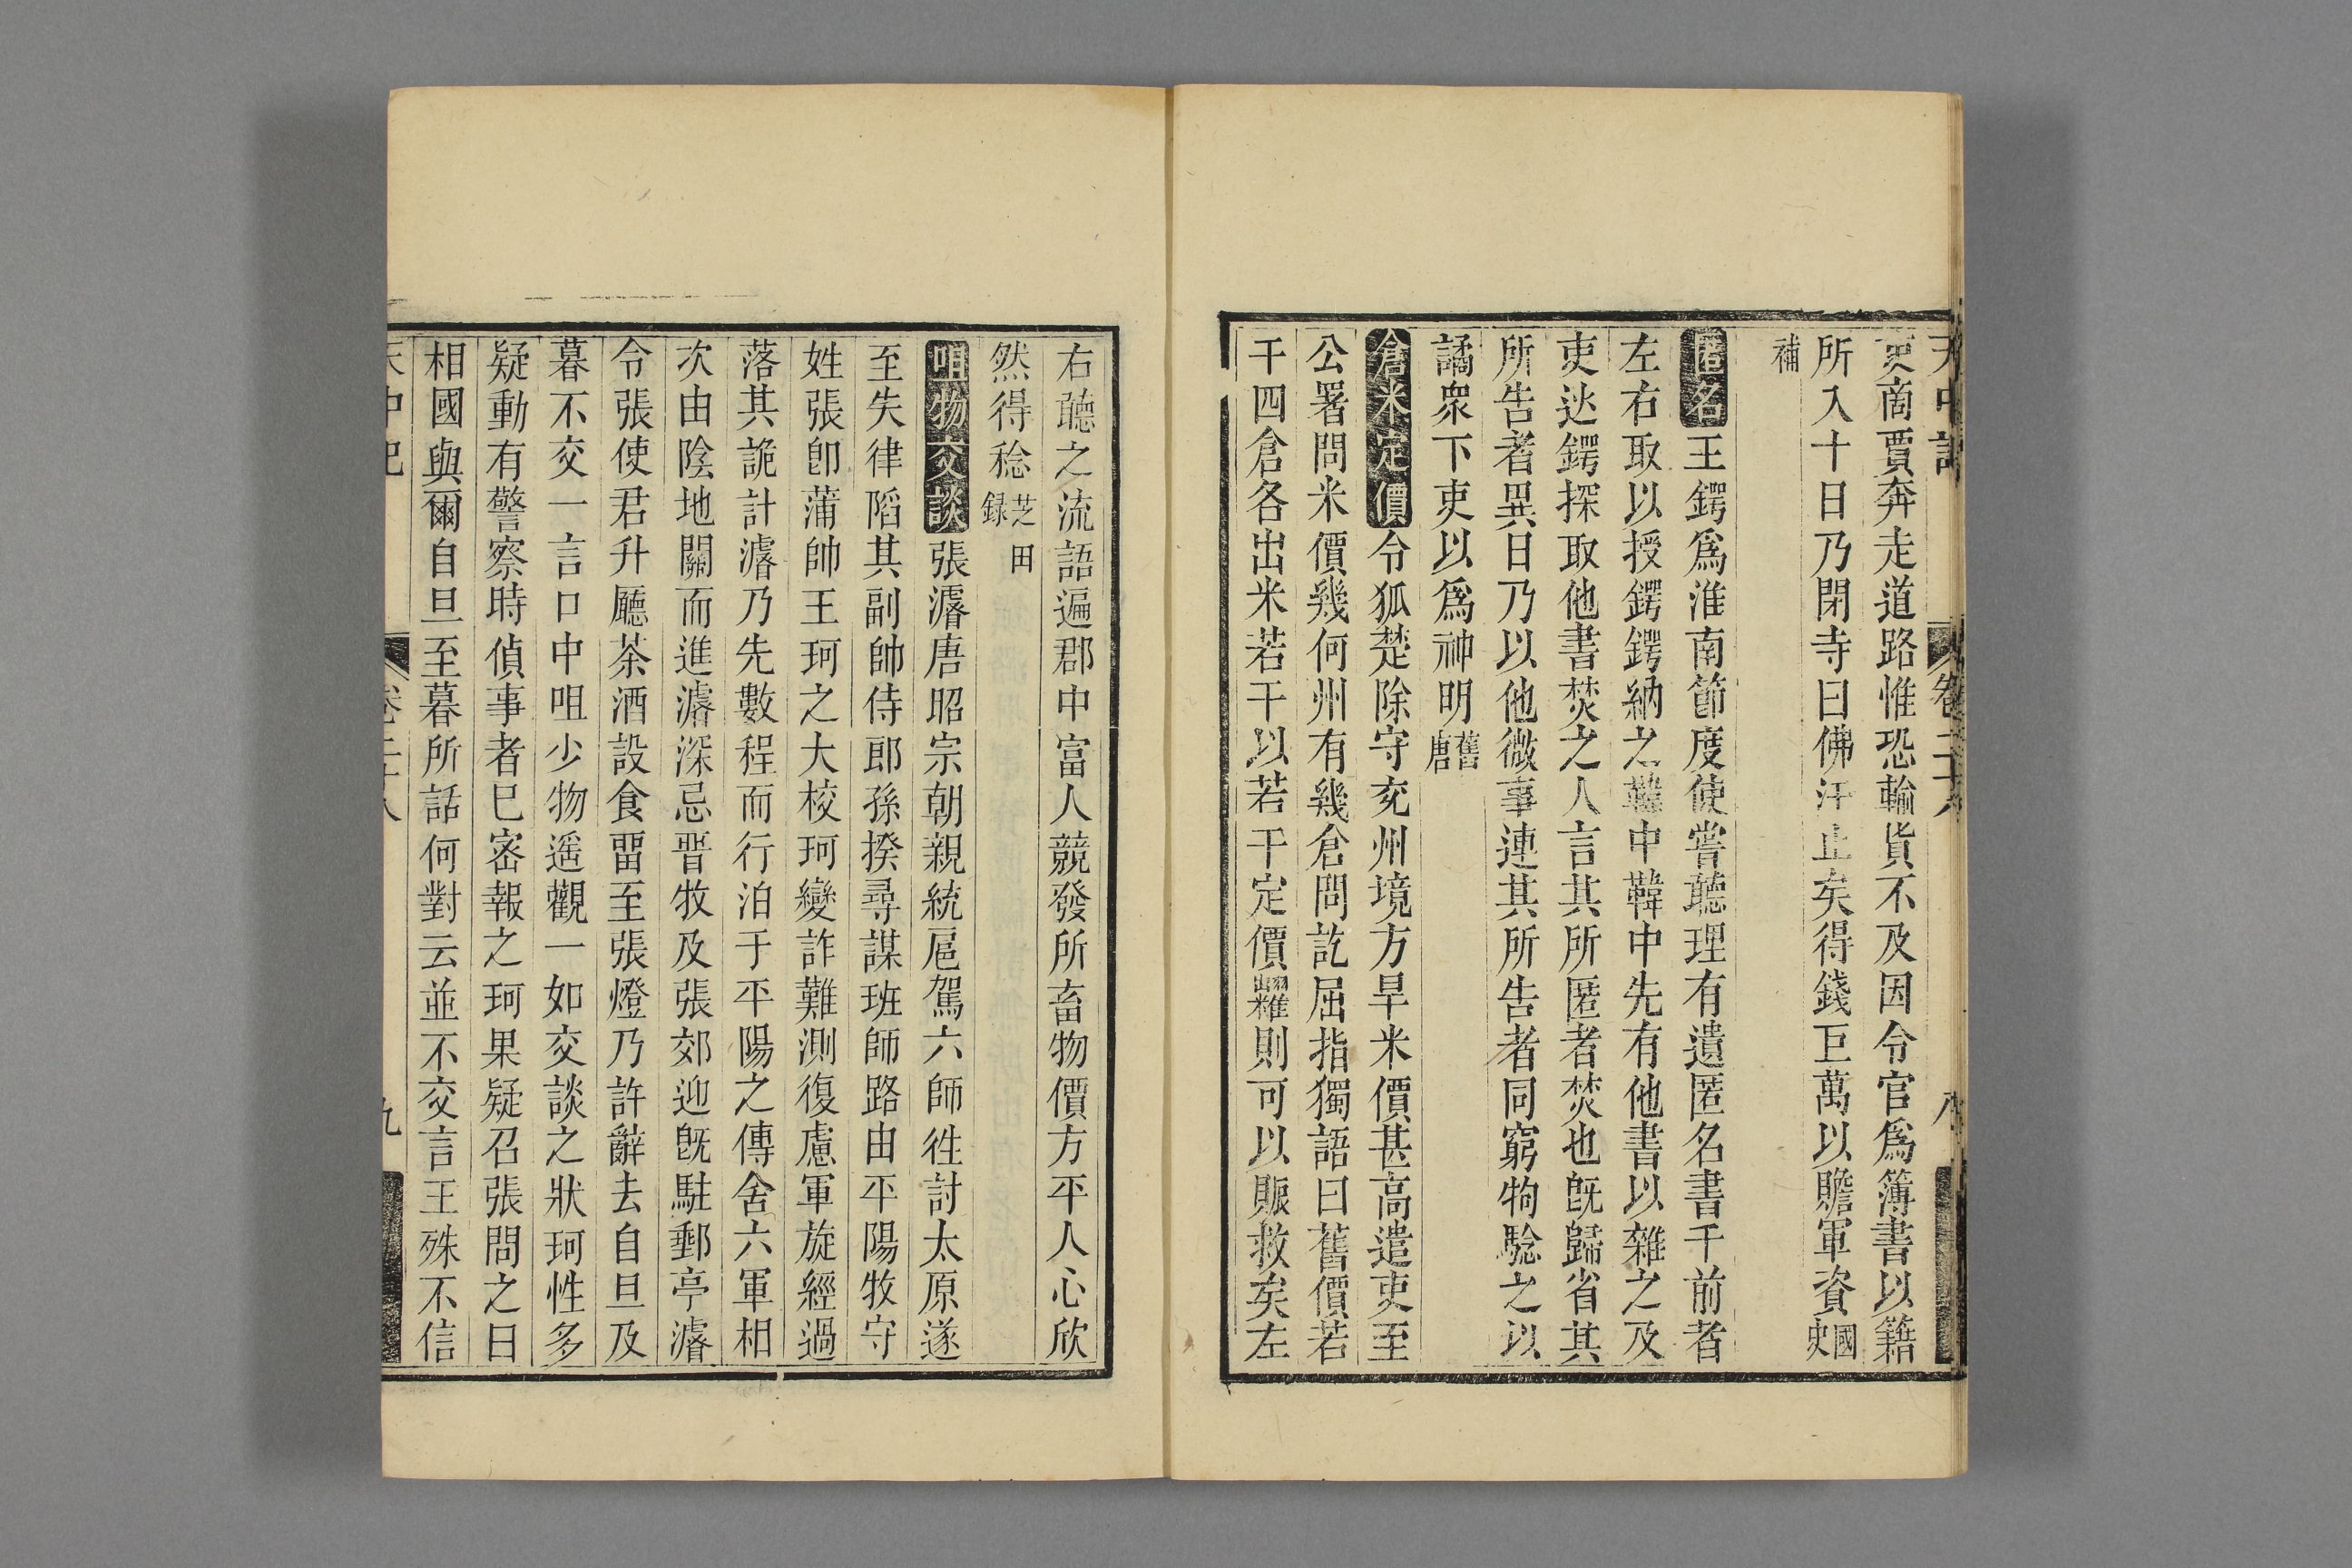 天中記 卷二十八 八
吏商賈奔走道路惟恐輸貨不及因令官爲簿書以籍
所入十日乃閉寺曰佛汗止矣得錢巨萬以贍軍資國史
補
匿名王鍔爲淮南節度使嘗聽理有遺匿名書于前者
左右取以授鍔鍔納之鞾中鞾中先有他書以雜之及
吏迯鍔探取他書焚之人言其所匿者焚也旣歸省其
所告者異日乃以他微事連其所告者同窮狥驗之以
譎衆下吏以爲神明舊唐
倉米定價令狐楚除守兗州境方旱米價甚高遣吏至
公署問米價幾何州有幾倉問訖屈指獨語曰舊價若
干四倉各出米若干以若干定價糶則可以賑救矣左
右聽之流語遍郡中富人競發所畜物價方平人心欣
然得稔芝田録
咀物交談張濬唐昭宗朝親統扈駕六師徃討太原遂
至失律陷其副帥侍郎孫揆尋謀班師路由平陽牧守
姓張卽蒲帥王珂之大校珂變詐難測復慮軍旋經過
落其詭計濬乃先數程而行泊于平陽之傳舍六軍相
次由陰地關而進濬深忌晋牧及張郊迎旣駐郵亭濬
令張使君升廳茶酒設食畱至張燈乃許辭去自旦及
暮不交一言口中咀少物遥觀一如交談之狀珂性多
疑動有警察時偵事者巳密報之珂果疑召張問之曰
相國與爾自旦至暮所話何對云並不交言王殊不信
天中記 卷二十八 九